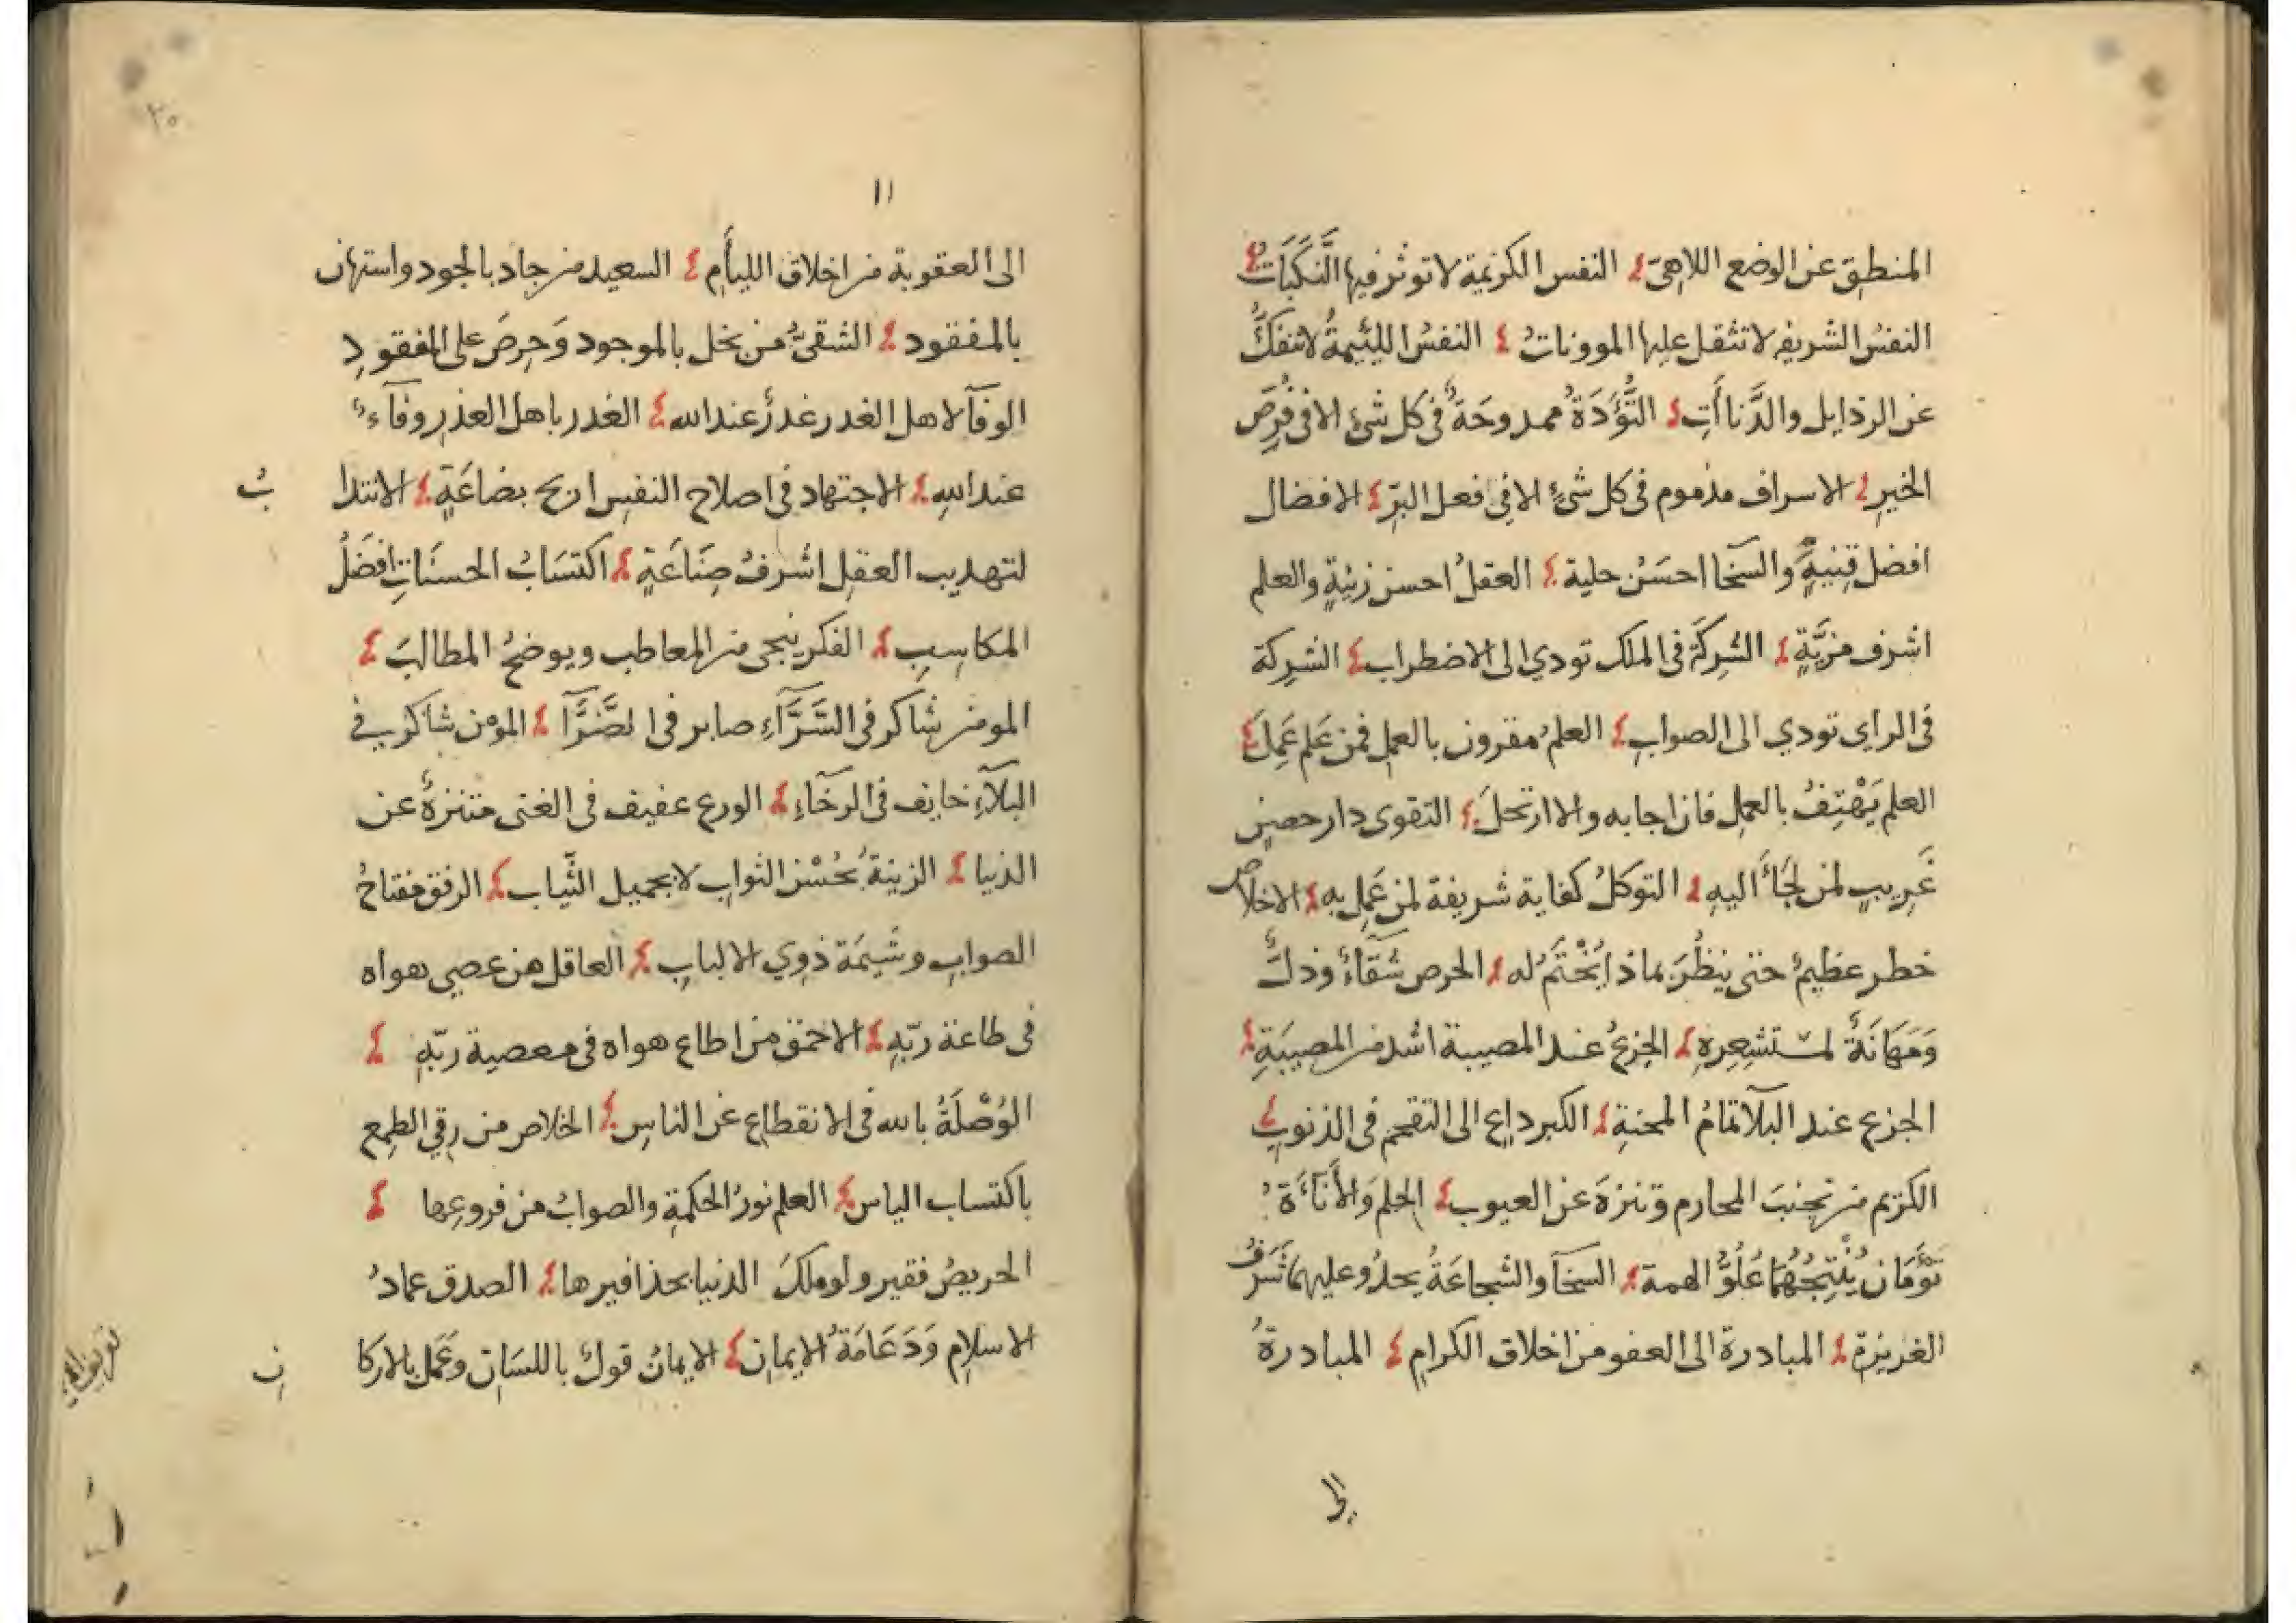 المنطق عن الوضع اللاهي النفس الكريمة لا توثر فيها النَّكَبَاتُ
النفسُ الشريفه لا تثقل عليها الموونات النفسُ اللئيمةُ لا تنفكُّ
عن الرذايل والدَّناأَتِ التُّؤَدَةُ ممدوحَةٌ في كل شئ الا في فُرَصِ
الخيرِ الاسراف مذموم في كل شئٍ الا في فعل البرّ الافضال
افضل قِنيةٍ والسخآ احسَنُ حلية العقلُ احسن زينةٍ والعلم
اشرف مزيَّةٍ الشركَة في الملك تودي الى الاضطراب الشركة
في الراي تودي الى الصوابِ العلمُ مقرون بالعملِ فمن عَلِم عَمِلَ
العلم يَهْتِفُ بالعملِ فان اجابه والا ارتحلَ التقوى دار حصين
غَرِيبٍ لمن لَجَأَ اليهِ التوكلُ كفاية شريفة لمن عَمِل به الاخلاص
خطر عظيمٌ حتى ينظُرَ بماذا يُخْتَمُ له الحرص شقآءٌ وذلٌّ
وَمَهَانَةٌ لمستشعِرِهِ الجزعُ عند المصيبة اشد من المصيبَةِ
الجزع عند البلآ تمامُ المحنةِ الكبر داعٍ الى التقحم في الذنوبِ
الكريم من تجنبَ المحارم وتنزهَ عن العيوبِ الحلم وَالأَنآءَةُ
تَوْأَمَان يُنْتِجُهُمَا عُلُوُّ الهمة السخآ والشجاعَةُ يحدُو عليهما شَرَفُ
الغريزةِ المبادرة الى العفو من اخلاق الكرامِ المبادرةُ
الى
١١
٢٠
الى العقوبة من اخلاق الليأمِ السعيد من جاد بالجود واستهان
بالمفقود الشقىُّ من بخل بالموجود وَحِرصَ على المفقودِ
الوفآ لاهل الغدر غدرٌ عند الله الغدر باهل الغدرِ وفآءٌ
عند اللهِ الاجتهاد في اصلاح النفسِ اربح بضاعَةٍ الانتدا بُ
لتهديب العقلِ اشرفُ صِنَاعَةٍ اكتسَابُ الحسنَاتِ افضَلُ
المكاسِبِ الفكر ينجى من المعاطب ويوضحُ المطالبَ
المومن شاكر في السَّرَّآءِ صابر في الضَّرَّآ المومن شاكر في
البلآءِ خايف في الرخآءِ الورع عفيف في الغنى متنزهٌ عن
الدنيا الزينةُ بحُسْن الثوابِ لا بجميل الثِّياب الرفق مفتاحُ
الصوابِ وشَيمَة ذوِي الالبابِ العاقل من عصي هواه
في طاعة ربّهِ الاحمق من اطاع هواه في معصية ربّهِ
الوُصْلَةُ بالله في الانقطاعِ عن الناسِ الخلاص من رِقِ الطمع
باكتساب الياسِ العلم نورُ الحكمةِ والصوابُ من فروعِها
الحريصُ فقير ولو ملكَ الدنيا بحذافيرها الصدق عمادُ
الاسلامِ وَدَعَامَةُ الايمانِ الايمانُ قولٌ باللسَانِ وعَمَل بالاركا نِ